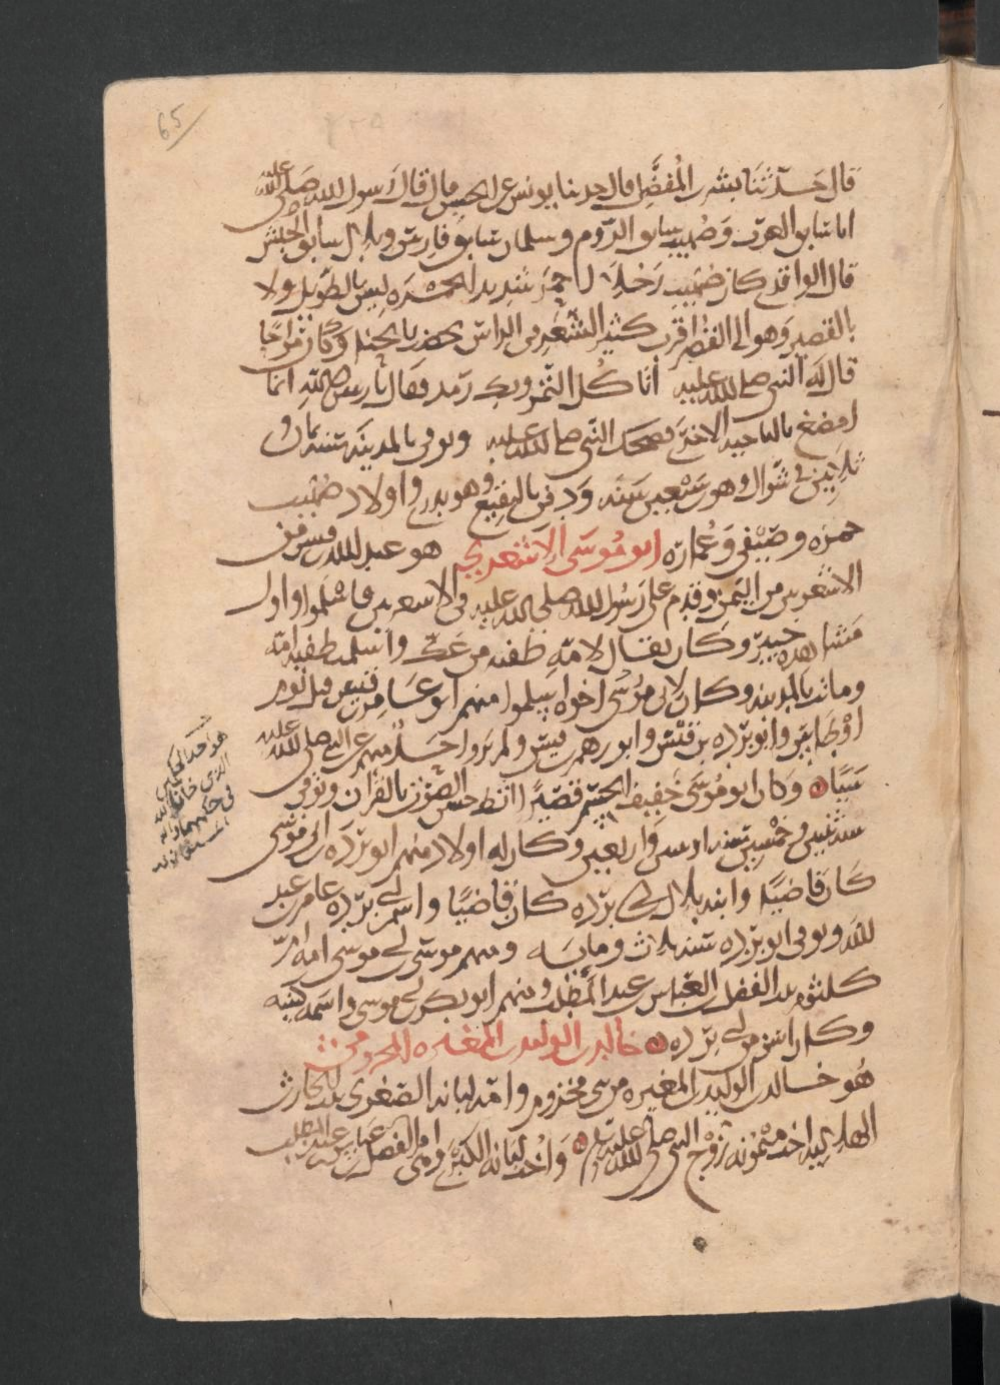 65
قال حدثنا بشر بن المفضل قال حدثنا يونس عن الحسن قال قال رسول الله صلى الله عليه
انا سابق العرب وصهيب سابق الروم وسلمان سابق فارس وبلال سابق الحبش
قال الواقدي كان صهيب رجلا احمر شديد الحمرة ليس بالطويل ولا
بالقصير وهو الى القصر اقرب كثير الشعر في الراس يخضب بالحناء وكان مزاحا
قال له النبي صلى الله عليه اتاكل التمر وبك رمد فقال يا رسول الله انما
امضغ بالناحية الاخرى فضحك النبي صلى الله عليه وتوفي بالمدينة سنة ثمان و
ثلاثين في شوال وهو بن سبعين سنة ودفن بالبقيع وهو بدري واولاد صهيب
حمزة وصيفي وعمارة ابو موسى الاشعري هو عبد الله بن قيس من
الاشعريين من اليمن وقدم على رسول الله صلى الله عليه في الاشعريين فاسلموا واول
مشاهده خيبر وكان يقال لامه طفية من عك واسلمت طفية امه
وماتت بالمدينة وكان لابي موسى اخوة اسلموا منهم ابو عامر بن قيس قتل يوم
اوطاس وابو بردة بن قيس وابو رهم بن قيس ولم يرو احد منهم عن النبي صلى الله عليه
شيئا وكان ابو موسى خفيف الجسم قصيرا اثط حسن الصوت بالقران وتوفي
سنة ثنتين وخمسين سنة اربعين وكان له اولاد منهم ابو بردة بن ابي موسى
كان قاضيا وابنه بلال بن ابي بردة كان قاضيا واسم ابي بردة عامر بن عبد
الله وتوفي ابو بردة سنة ثلاث ومائة ومنهم موسى بن ابي موسى امه ام
كلثوم بنت الفضل بن العباس بن عبد المطلب ومنهم ابو بكر بن ابي موسى واسمه كنيته
وكان اسن من ابي بردة خالد بن الوليد بن المغيرة المخزومي
هو خالد بن الوليد بن المغيرة من بني مخزوم وامه لبابة الصغرى بنت الحارث
الهلالية اخت ميمونة زوج النبي صلى الله عليه وسلم واخت لبابة الكبرى وهي ام الفضل بن عباس بن عبد المطلب
هو احد الحكمين
الذي خان الله
في حكمهما